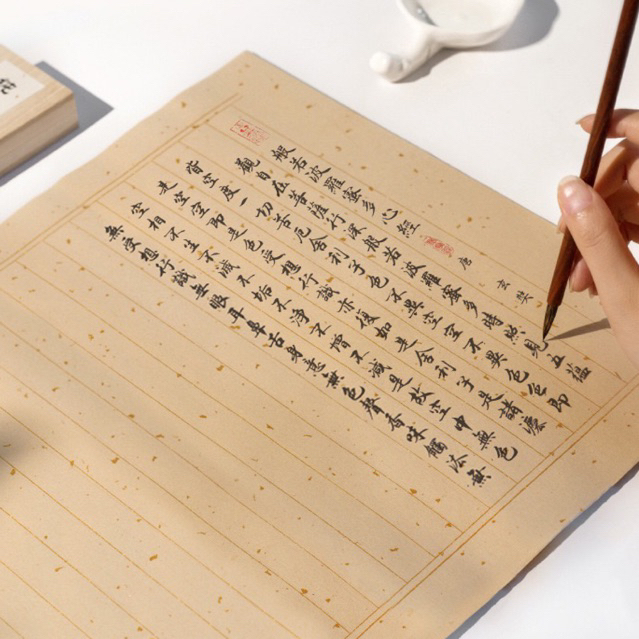 般若波羅蜜多心經 唐 玄奘
觀自在菩薩行深般若波羅蜜多時照見五蘊
皆空度一切苦厄舍利子色不異空空不異色色即
是空空即是色受想行識亦復如是舍利子是諸法
空相不生不滅不垢不淨不增不減是故空中無色
無受想行識無眼耳鼻舌身意無色聲香味觸法無